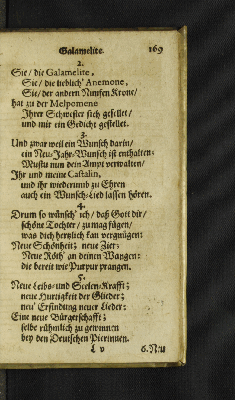 Galamelite. 169
2.
Sie / die Galamelite,
Sie / die lieblich' Anemone,
Sie / der andern Ninfen Krone /
hat zu der Melpomene
Ihrer Schwester sich gesellet /
und mir ein Gedicht gestellet.
3.
Und zwar weil ein Wunsch darin /
ein Neu-Jahr-Wunsch ist enthalten:
Mustu nun dein Ampt verwalten /
Ihr und meine Castalin,
und ihr wiederumb zu Ehren
auch ein Wunsch-Lied lassen hören.
4.
Drum so wünsch' ich / daß Gott dir /
schöne Tochter / zu mag fügen /
was dich hertzlich kan vergnügen:
Neue Schönheit; neue Zier;
Neue Röth' an deinen Wangen:
die bereit wie Purpur prangen.
5.
Neue Leibs- und Seelen-Krafft;
neue Hurtigkeit der Glieder;
neu' Erfindung neuer Lieder:
Eine neue Bürgerschafft;
selbe rühmlich zu gewinnen
bey den Deutschen Pierinnen.
L v 6. Neu